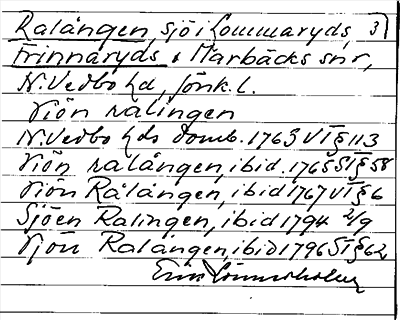 Ralången, sjö i Lommaryds, 3)
Frinnaryds & Marbäcks snr,
N. Vedbo hd, Jönk. l.
Siön Ralingen
N. Vedbo hds domb. 1763 VI § 113
Siön Ralången, ibid. 1765 SI § 58
Siön Rålången, ibid 1767 VI § 6
Sjöen Ralingen, ibid 1794 2/9
Sjön Ralången, ibid 1796 SI § 62